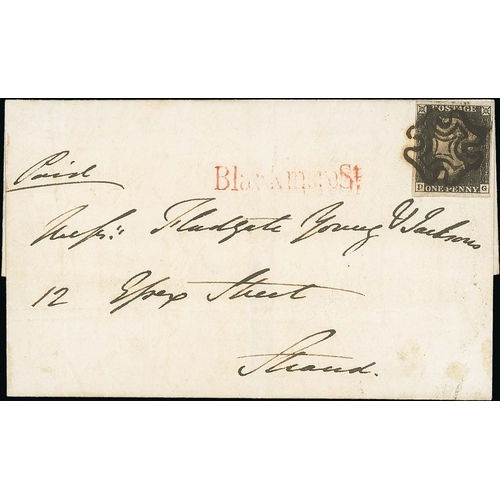 POSTAGE
D ONE PENNY G
Paid
Blackmore St
Messrs: Fladgate Young & Jackson
12 Essex Street
Strand.